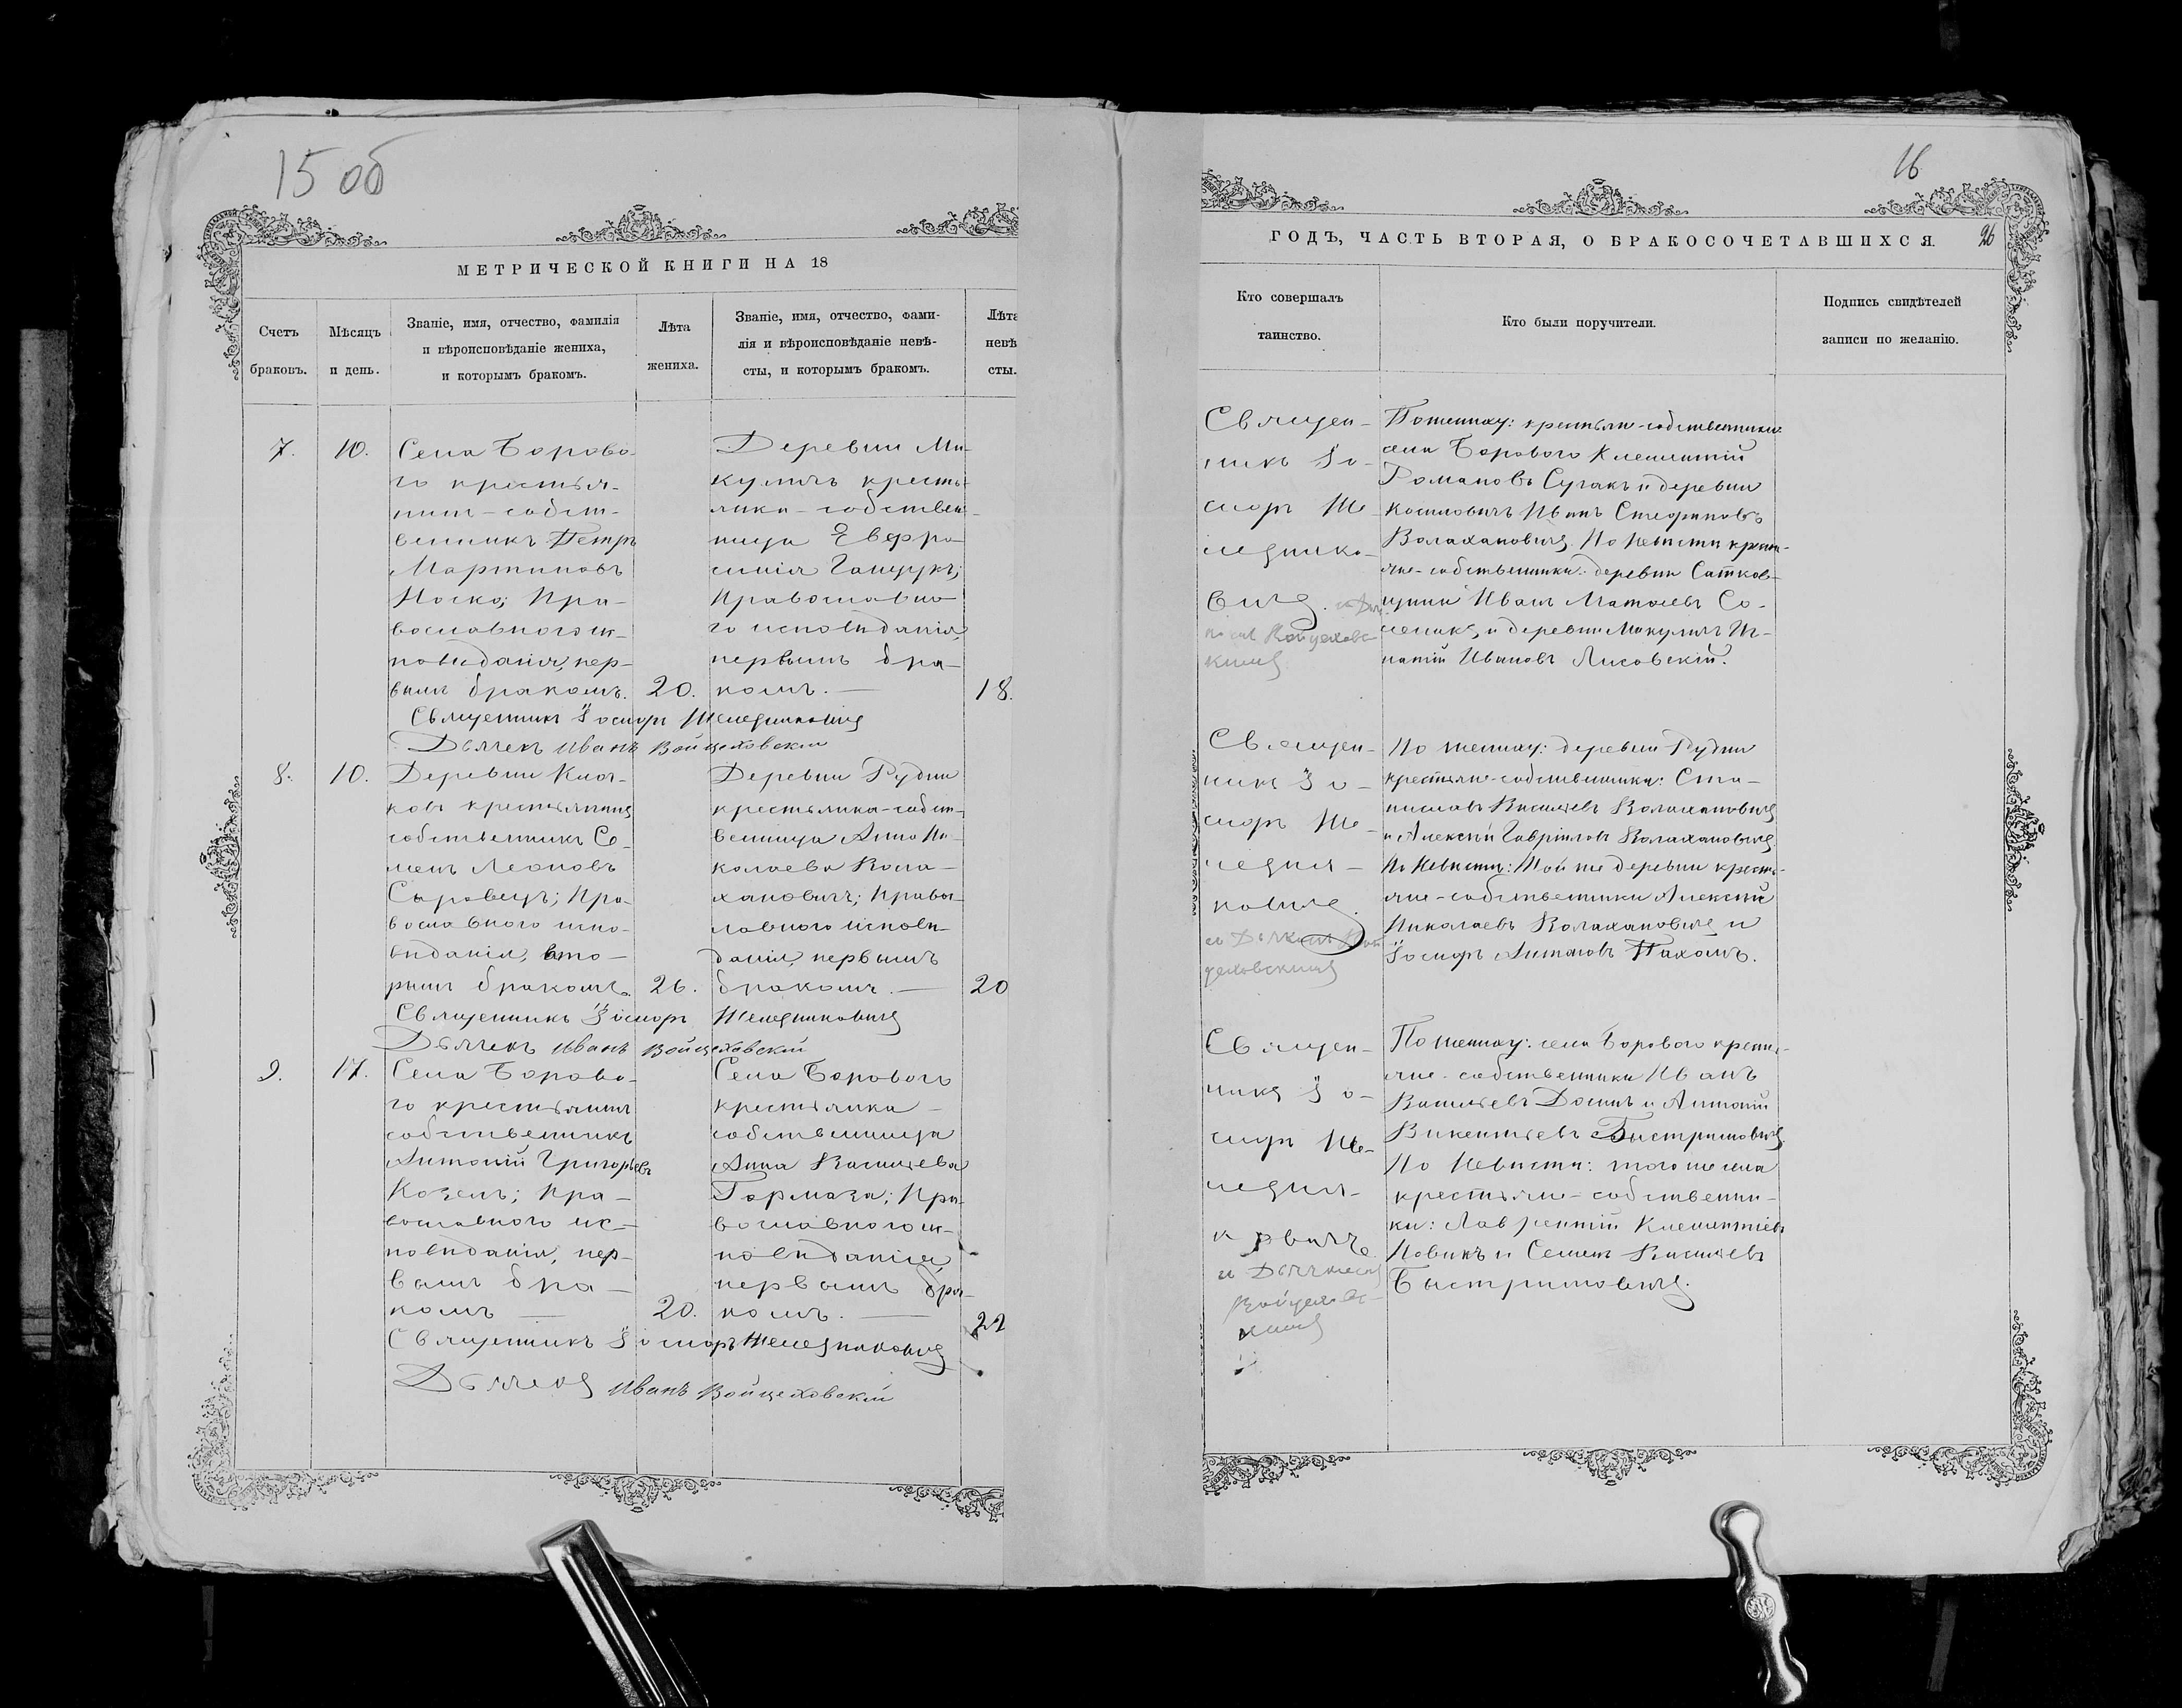 15 об
МЕТРИЧЕСКОЙ КНИГИ НА 18
Счетъ
браковъ.
Мѣсяцъ
и день.
Званіе, имя, отчество, фамилія
и вѣроисповѣданіе жениха,
и которымъ бракомъ.
Лѣта
жениха.
Званіе, имя, отчество, фами-
лія и вѣроисповѣданіе невѣ-
сты, и которымъ бракомъ.
Лѣта
невѣ
сты.
7.
10.
Села Борово-
го крестья-
нинъ-собст-
венникъ Петръ
Мартиновъ
Носко; Пра-
вославного ис-
повѣданія, пер-
вымъ бракомъ.
20.
Деревни Ми-
куличъ кресть-
янка-собствен-
ница Евфро-
синія Гапщукъ;
Православно-
го исповѣданія,
первымъ бра-
комъ.
18.
Священникъ Іосифъ Желѣзняковичъ
Дьячекъ Иванъ Войцеховскій
8.
10.
Деревни
крестьянинъ
собственникъ Се-
менъ Леоновъ
Сыровецъ; Пра-
вославного испо-
вѣданія, вто-
рымъ бракомъ.
26.
Деревни Рудни
крестьянка-собст-
венница Анна Ни-
колаева Вола-
хановичъ; Правос-
лавного исповѣ-
данія, первымъ
бракомъ.
20
Священникъ Іосифъ Желѣзняковичъ
Дьячекъ Иванъ Войцеховскій
9.
17.
Села Борово-
го крестьянинъ
собственникъ
Антоній Григорьевъ
Козелъ; Пра-
вославного ис-
повѣданія, пер-
вымъ бра-
комъ
20.
Села Борового
крестьянка
собственница
Анна Васильева
Гормаза; Пра-
вославного ис-
повѣданія
первымъ бра-
комъ.
22
Священникъ Іосифъ Желѣзняковичъ
Дьячекъ Иванъ Войцеховскій
16
26
ГОДЪ, ЧАСТЬ ВТОРАЯ, О БРАКОСОЧЕТАВШИХСЯ.
Кто совершалъ
таинство.
Кто были поручители.
Подпись свидѣтелей
записи по желанію.
Священ-
никъ Іо-
сифъ Же-
лѣзняко-
вичъ.
По жениху: крестьяне-собственники:
села Борового Климентій
Романовъ Сугакъ и деревни
Иванъ Стефановъ
Волахановичъ. По невѣсти крест-
яне-собственники: деревни Сатков-
щини Иванъ Матвѣевъ
и деревни Микуличъ Иг-
натій Ивановъ Лисовскій.
Священ-
никъ Іо-
сифъ Же-
лѣзня-
ковичъ.
и Дьячкомъ Вой
цеховскимъ
По жениху: деревни Рудни
крестьяне-собственники: Ста-
ниславъ Васильевъ Волахановичъ
и Алексѣй Гавріиловъ Волахановичъ.
По невѣсти: Той же деревни кресть-
яне-собственники Алексѣй
Николаевъ Волахановичъ и
Іосифъ Антоновъ Пахомъ.
Священ-
никъ Іо-
сифъ Же-
лѣзня-
ковичъ
и Дьячкомъ
Войцеховс-
кимъ
По жениху: села Борового кресть-
яне-собственники Иванъ
Васильевъ и Антоній
Викентіевъ Быстримовичъ.
По невѣсти: того же села
крестьяне-собственни-
ки: Лаврентій Климентіевъ
Новикъ и Семенъ Васильевъ
Быстримовичъ.